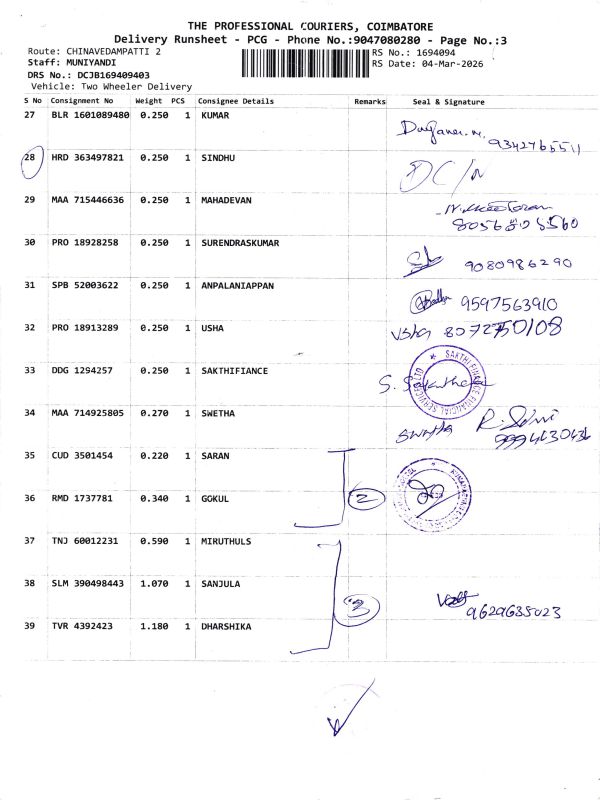 THE PROFESSIONAL COURIERS, COIMBATORE
Delivery Runsheet - PCG - Phone No.:9047080280 - Page No.:3
Route: CHINAVEDAMPATTI 2
RS No.: 1694094
Staff: MUNIYANDI
RS Date: 04-Mar-2026
DRS No.: DCJB169409403
Vehicle: Two Wheeler Delivery
S No Consignment No Weight PCS Consignee Details Remarks Seal & Signature
27 BLR 1601089480 0.250 1 KUMAR
9342765511
28 HRD 363497821 0.250 1 SINDHU
DC/N
29 MAA 715446636 0.250 1 MAHADEVAN
30 PRO 18928258 0.250 1 SURENDRASKUMAR
9080986290
31 SPB 52003622 0.250 1 ANPALANIAPPAN
9597563910
32 PRO 18913289 0.250 1 USHA
Usha
33 DDG 1294257 0.250 1 SAKTHIFIANCE
SAKTHI FINANCE FINANCIAL SERVICES LTD
34 MAA 714925805 0.270 1 SWETHA
Swetha
35 CUD 3501454 0.220 1 SARAN
36 RMD 1737781 0.340 1 GOKUL 2
37 TNJ 60012231 0.590 1 MIRUTHULS
38 SLM 390498443 1.070 1 SANJULA 3
9629635023
39 TVR 4392423 1.180 1 DHARSHIKA